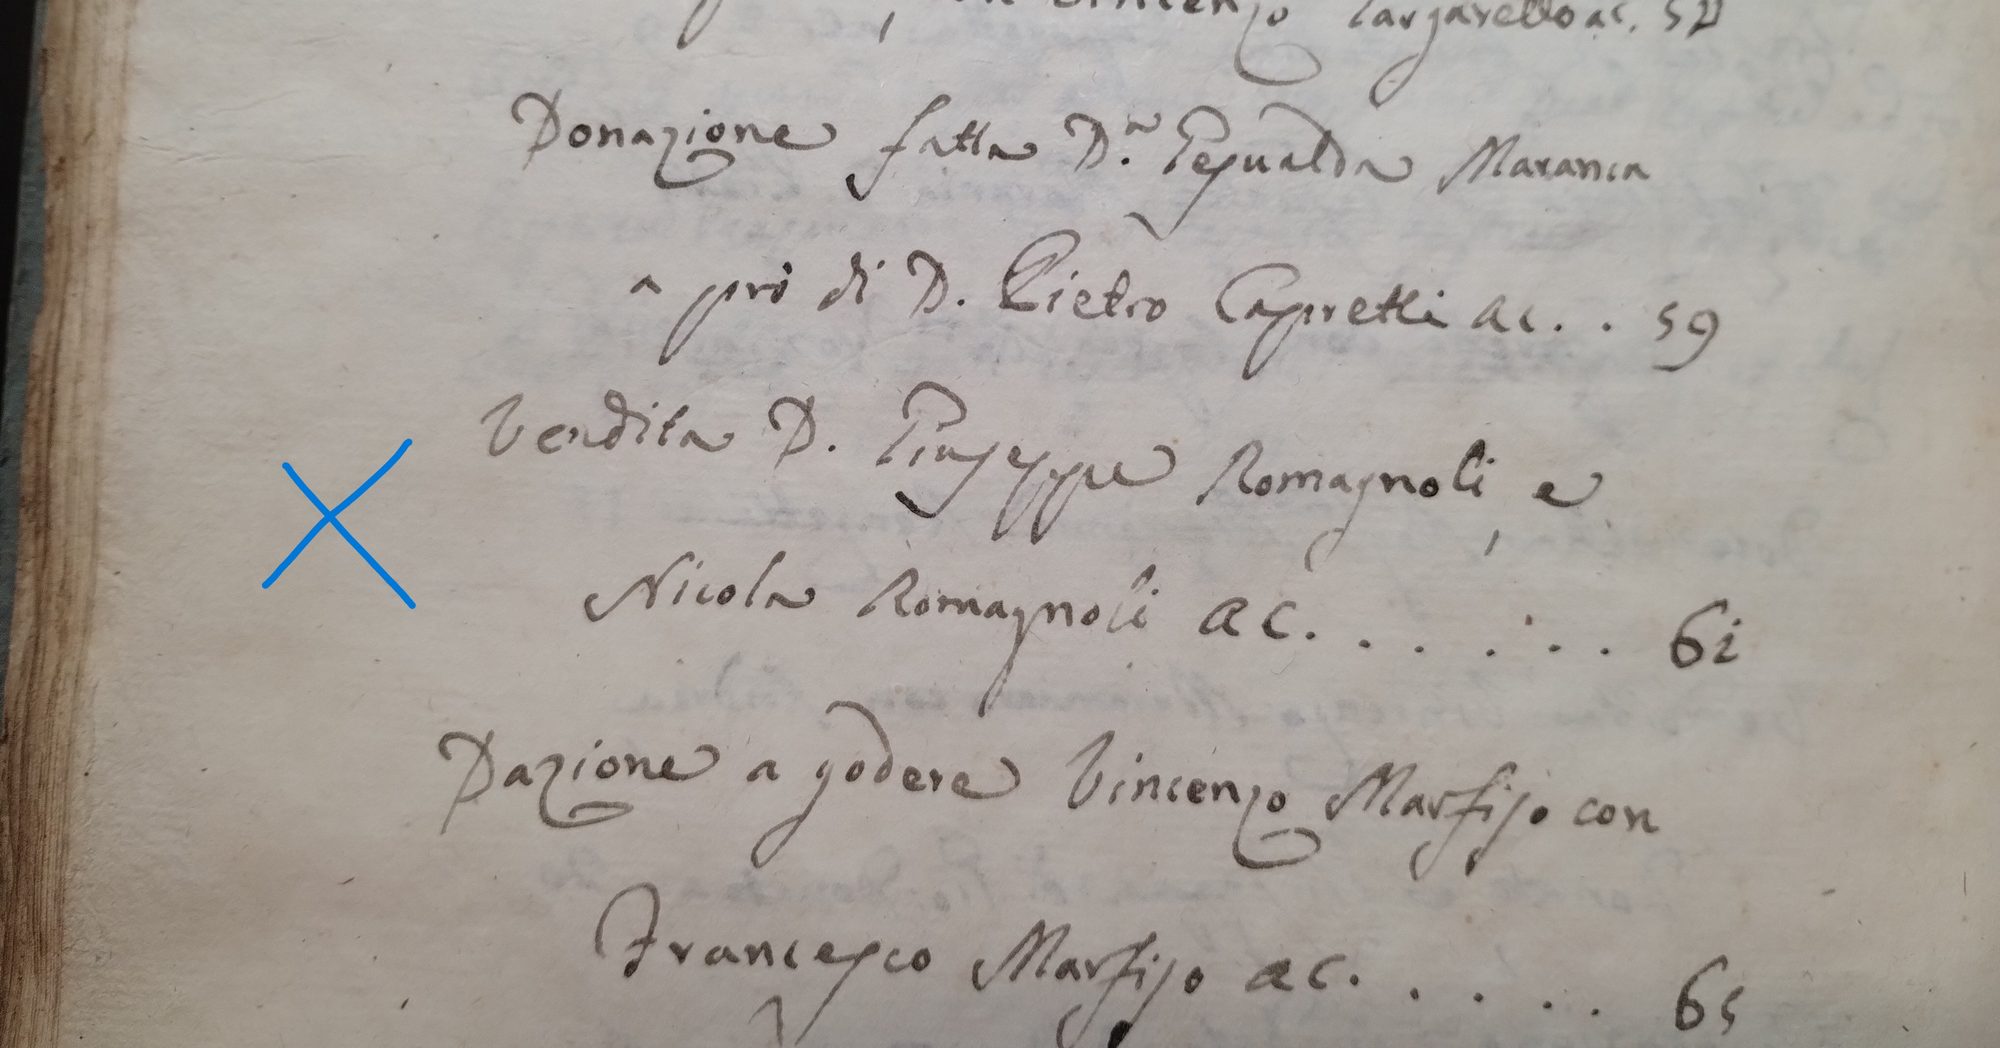 Vincenzo Targarello ac. 57
Donazione fatta D.ª Gesualda Maranca
a prò di D. Pietro Capretti ac. . 59
Vendita D. Giuseppe Romagnoli, e
Nicola Romagnoli ac. . . . . . 61
Dazione a godere Vincenzo Marfiso con
Francesco Marfiso ac. . . . . 65